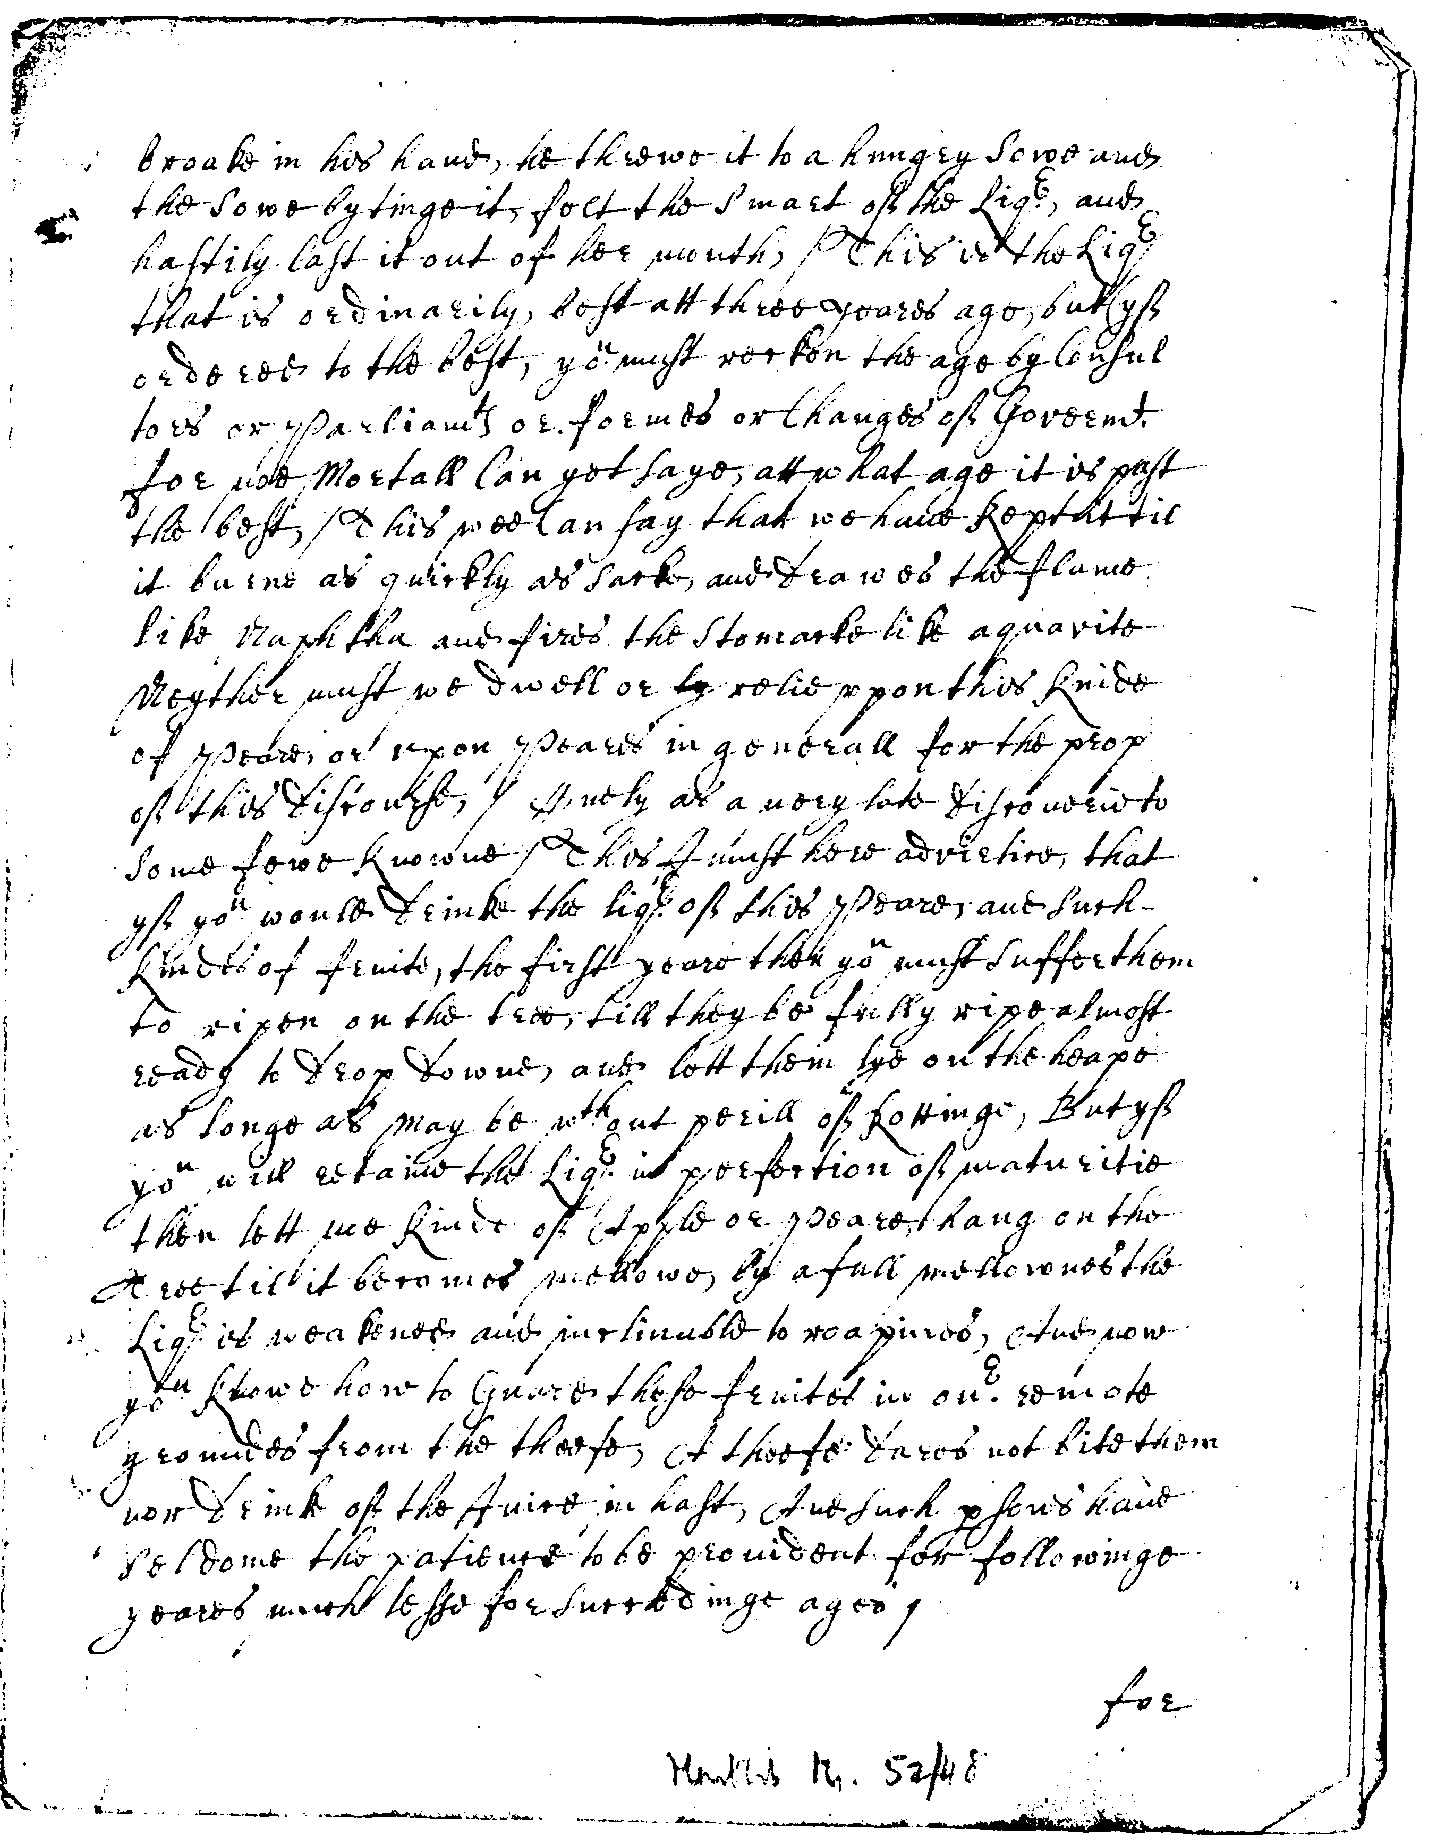 broake in his hand, he threwe it to a hungry Sowe and
the Sowe bytinge it, felt the Smart off the Liqr, and
hastily Cast it out of her mouth, / This is the Liqr
that is ordinarily, best att three yeares age, but yff
ordered to the best, you must reckon the age by Consul
tors or Parliamts or formes or Changes off Governmt.
for noe Mortall Can yet saye, att what age it is past
the best, / This wee Can say that we haue kept it til
it burne as quickly as Sacke, and drawes the flame
like Naphtha and fires the Stomacke like aquavite
Neyther must we dwell or ly relie uppon this kinde
of Peare, or upon Peares in generall for the prop
off this discourse, / Onely as a uery late discouerie to
some fewe knowne / This I must here advertice, that
yff you would drinke the liqr off this Peare, and such
kindes of fruite, the first yeare then you must suffer them
to ripen on the tree, till they be fully ripe almost
ready to drop downe, and lett them lye on the heape
as longe as may be wthout perill off Rottinge, But yff
you will retaine the Liqr in perfection off maturitie
then lett noe kinde off Apple or Peare, hang on the
Tree til it becomes mellowe, by a full mellownes the
Liqr is weakened and inclinable to roapines, And now
you knowe how to Guard these fruites in our remote
groundes from the theefe, A theefe dares not bite them
nor drink off the Juice in hast, And such psons haue
seldome the patience to be prouident for followinge
yeares much lesse for succedinge ages /
for
52/48